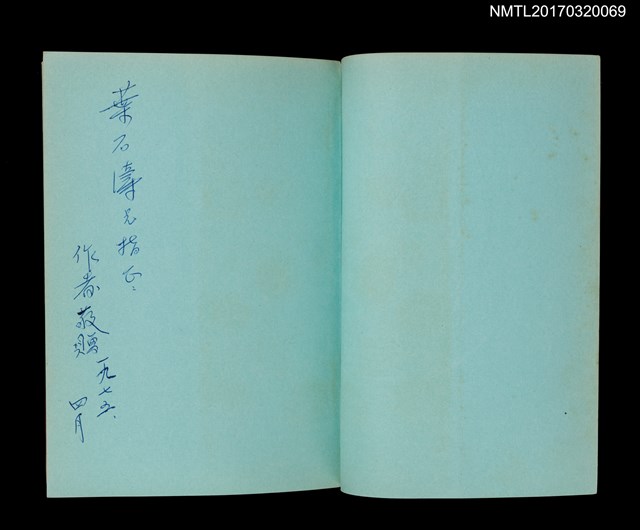 NMTL20170320069
葉石濤兄指正：
作者敬贈
一九七五、
四月